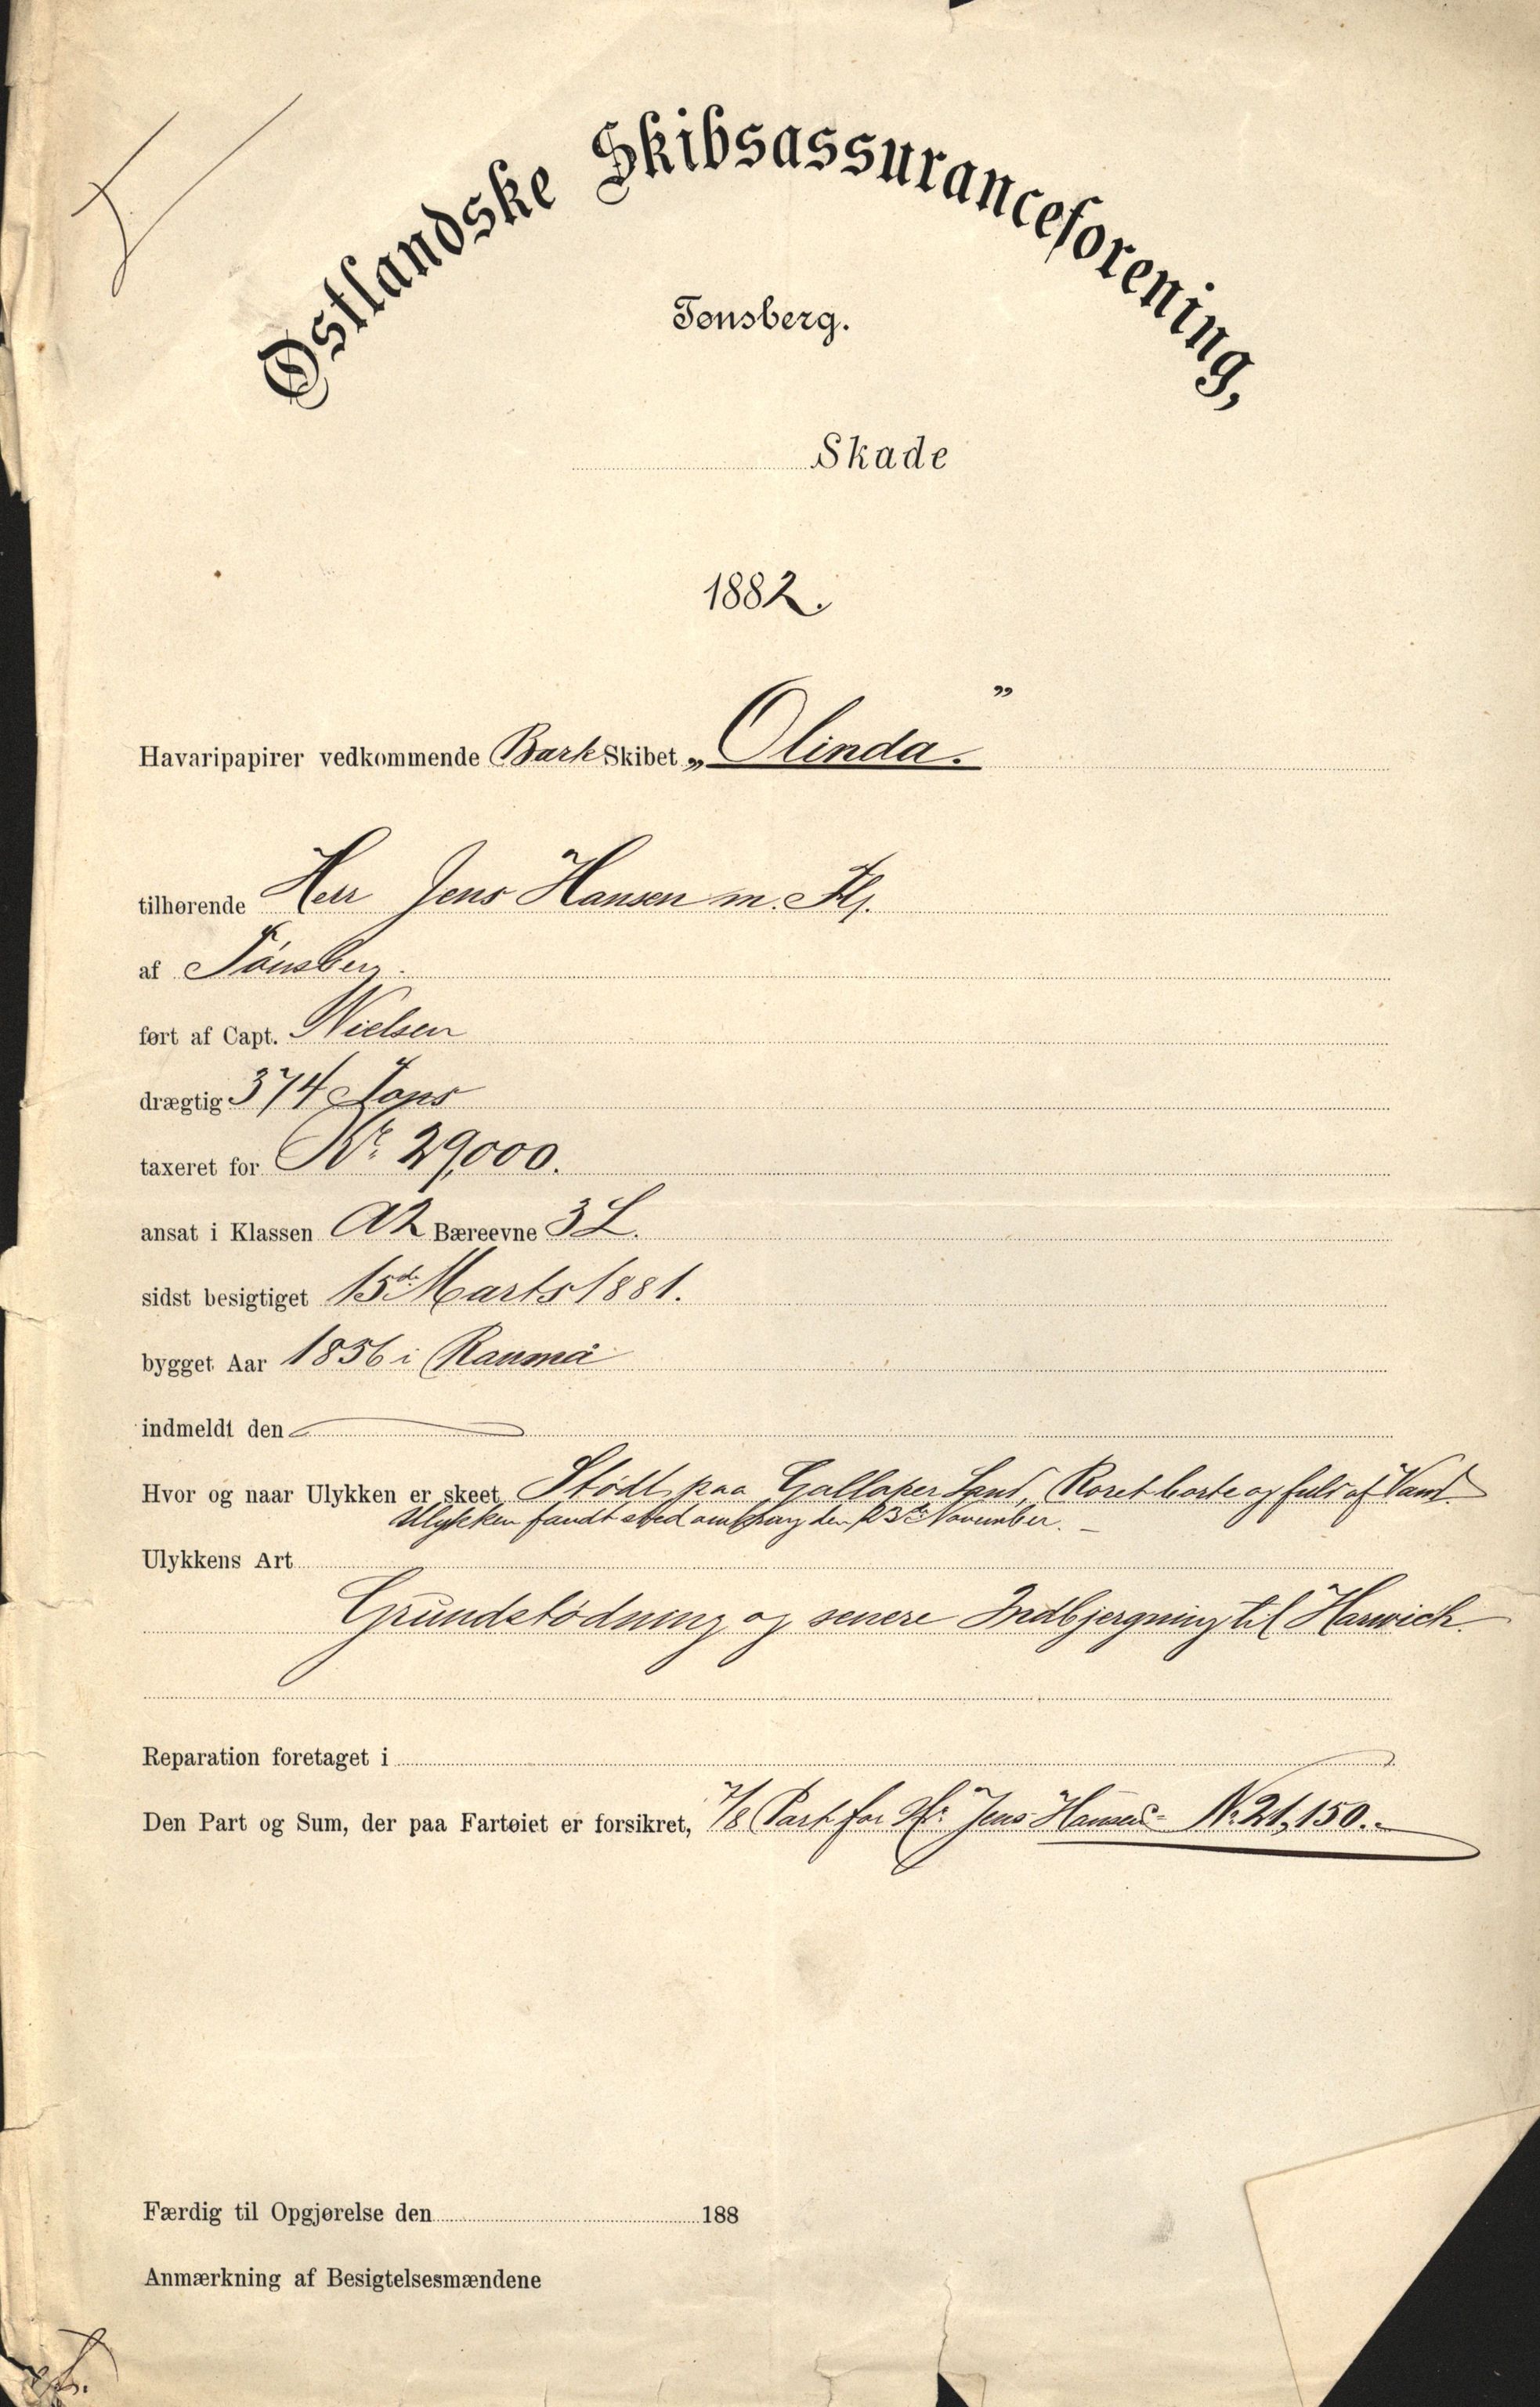 Østlandske Skibsassuranceforening,
Tønsberg.
Skade
1882.
Havaripapirer vedkommende Bark Skibet „Olinda."
tilhørende Herr Jens Hansen m. Fl.
af Tönsberg.
ført af Capt. Nielsen
drægtig 374 Tons
taxeret for Kr. 29,000.
ansat i Klassen A2 Bæreevne 3 L.
sidst besigtiget 15de Marts 1881.
bygget Aar 1856 i Raumå
indmeldt den
Hvor og naar Ulykken er skeet Stödt paa Gallaper Sand, Roret borte og fuld af Vand.
Ulykken fandt sted omkring den 23de November. –
Ulykkens Art
Grundstödning og senere Indbjergning til Harwich.
Reparation foretaget i
Den Part og Sum, der paa Fartøiet er forsikret, 7/8 Part for Hr. Jens Hansen = Kr. 21,150.-
Færdig til Opgjørelse den 188
Anmærkning af Besigtelsesmændene